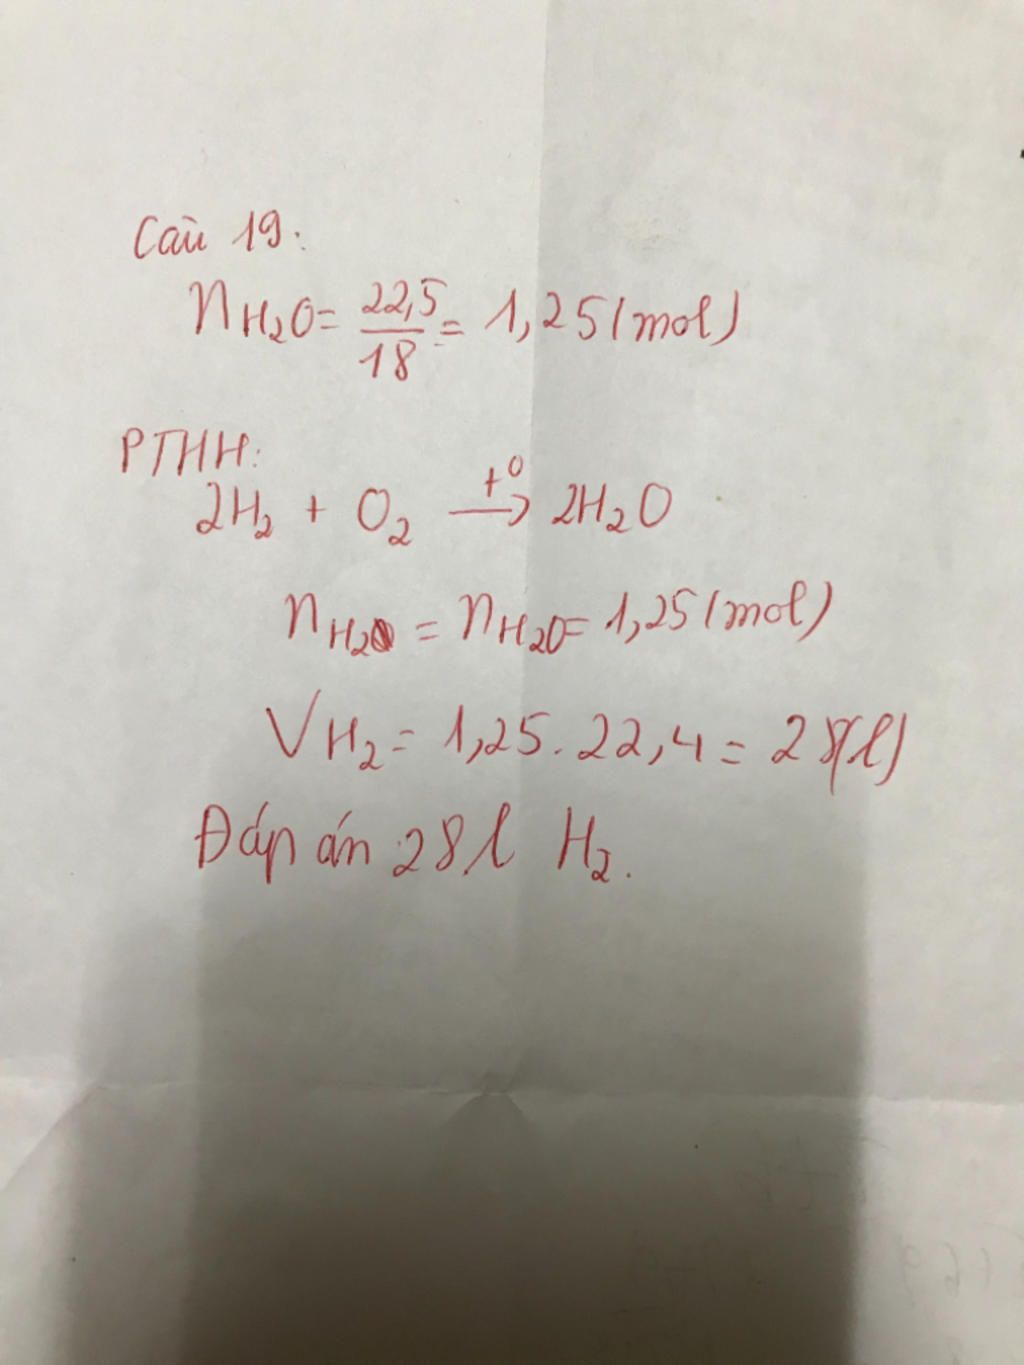 Câu 19:
nH₂O = 22,5/18 = 1,25 (mol)
PTHH:
2H₂ + O₂ —t⁰→ 2H₂O
nH₂ = nH₂O = 1,25 (mol)
VH₂ = 1,25 . 22,4 = 28 (l)
Đáp án 28 l H₂.